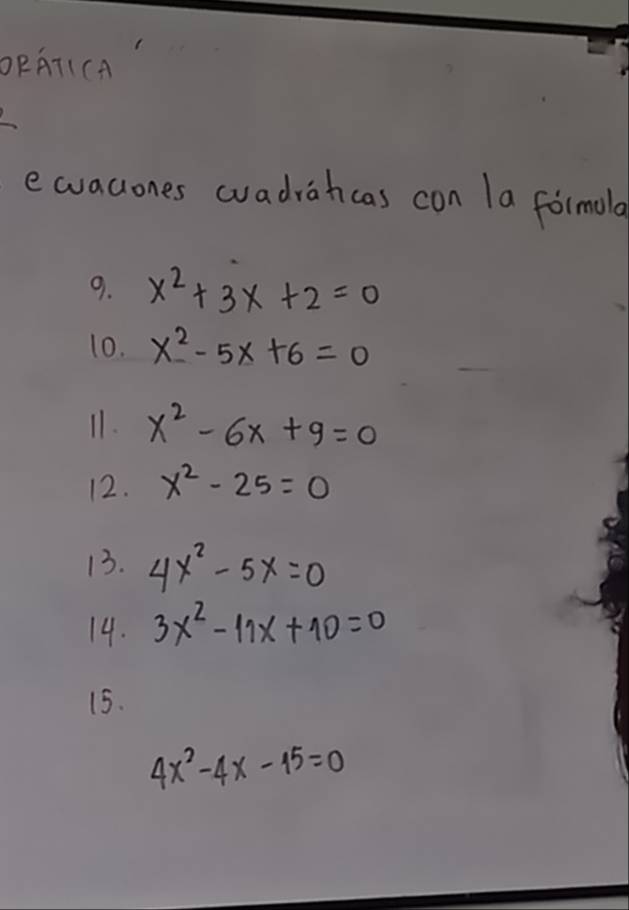 ORÁTICA
2
ecuaciones cuadráticas con la fórmula
9. x² + 3x + 2 = 0
10. x² - 5x + 6 = 0
11. x² - 6x + 9 = 0
12. x² - 25 = 0
13. 4x² - 5x = 0
14. 3x² - 11x + 10 = 0
15.
4x² - 4x - 15 = 0